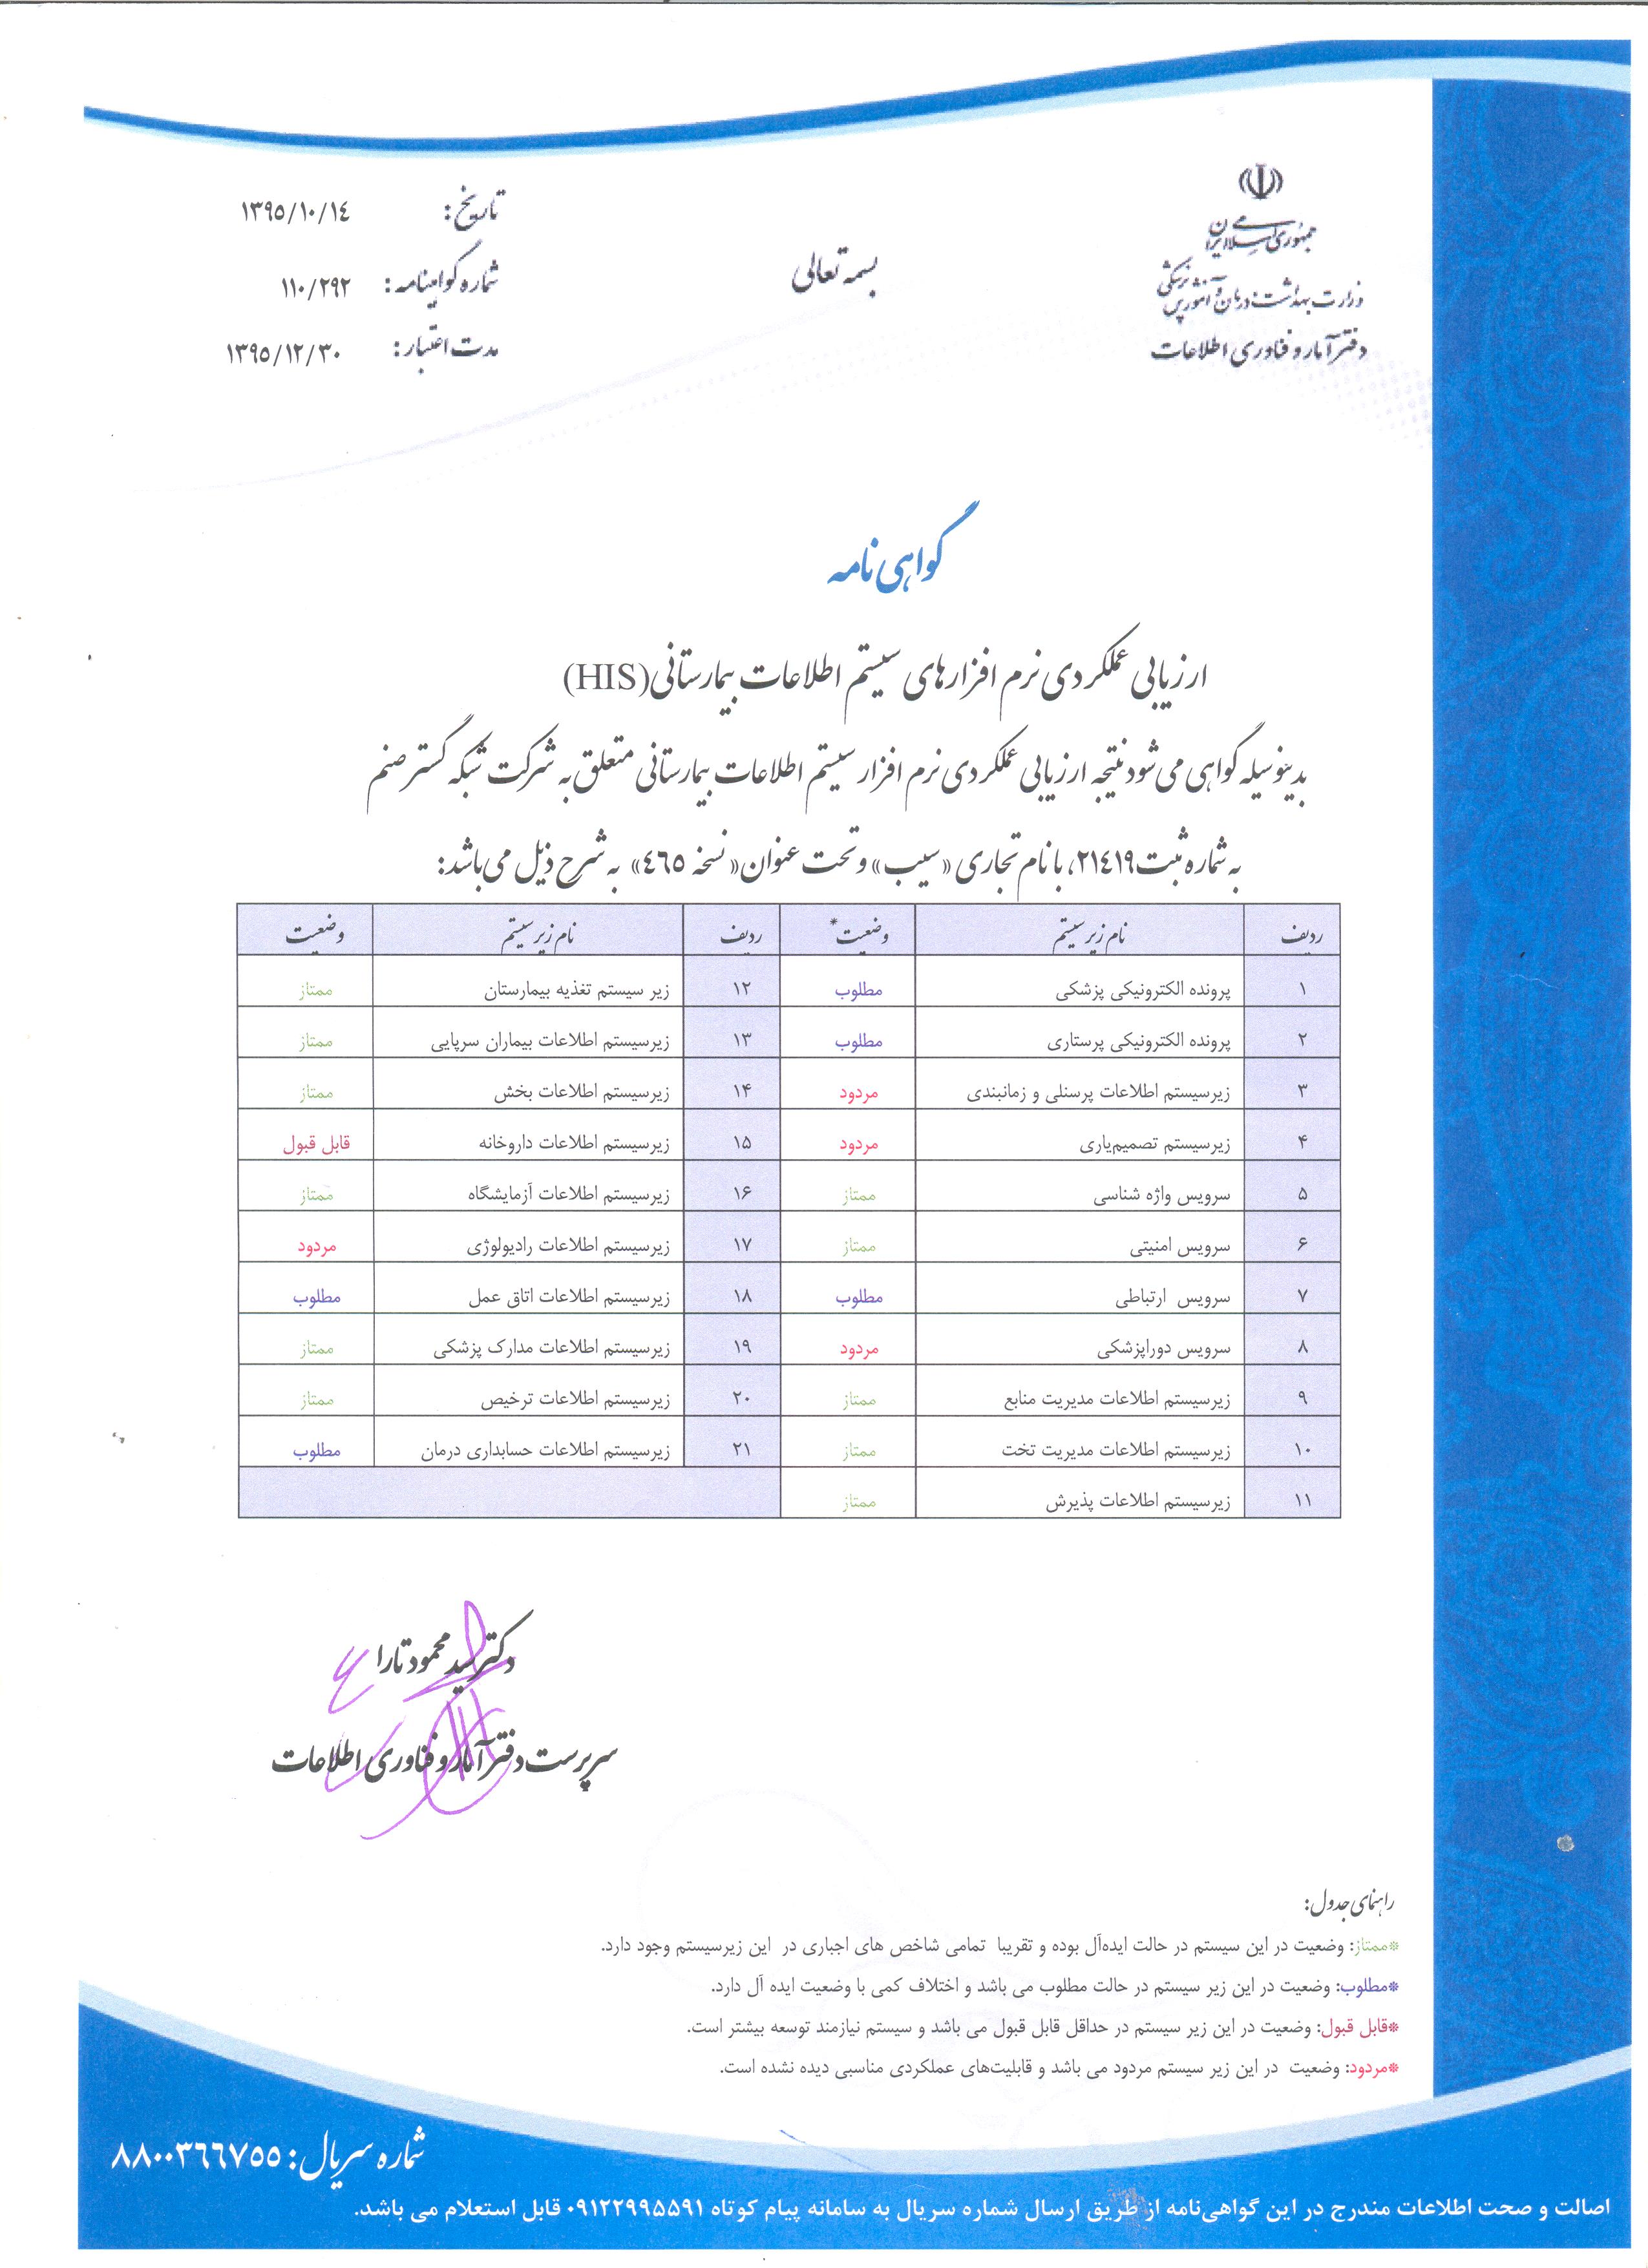 جمهوری اسلامی ایران
وزارت بهداشت درمان و آموزش پزشکی
دفتر آمار و فناوری اطلاعات
بسمه تعالی
تاریخ: ۱۳۹۵/۱۰/۱۴
شماره گواهینامه: ۱۱۰/۲۹۲
مدت اعتبار: ۱۳۹۵/۱۲/۳۰
گواهی نامه
ارزیابی عملکردی نرم افزارهای سیستم اطلاعات بیمارستانی(HIS)
بدینوسیله گواهی می شود نتیجه ارزیابی عملکردی نرم افزار سیستم اطلاعات بیمارستانی متعلق به شرکت شبکه گستر صنم
به شماره ثبت ۲۱۴۱۹، با نام تجاری «سیب» و تحت عنوان « نسخه ۴۶۵» به شرح ذیل می باشد:
ردیف نام زیر سیستم وضعیت* ردیف نام زیر سیستم وضعیت
۱ پرونده الکترونیکی پزشکی مطلوب ۱۲ زیر سیستم تغذیه بیمارستان ممتاز
۲ پرونده الکترونیکی پرستاری مطلوب ۱۳ زیرسیستم اطلاعات بیماران سرپایی ممتاز
۳ زیرسیستم اطلاعات پرسنلی و زمانبندی مردود ۱۴ زیرسیستم اطلاعات بخش ممتاز
۴ زیرسیستم تصمیم‌یاری مردود ۱۵ زیرسیستم اطلاعات داروخانه قابل قبول
۵ سرویس واژه شناسی ممتاز ۱۶ زیرسیستم اطلاعات آزمایشگاه ممتاز
۶ سرویس امنیتی ممتاز ۱۷ زیرسیستم اطلاعات رادیولوژی مردود
۷ سرویس ارتباطی مطلوب ۱۸ زیرسیستم اطلاعات اتاق عمل مطلوب
۸ سرویس دوراپزشکی مردود ۱۹ زیرسیستم اطلاعات مدارک پزشکی ممتاز
۹ زیرسیستم اطلاعات مدیریت منابع ممتاز ۲۰ زیرسیستم اطلاعات ترخیص ممتاز
۱۰ زیرسیستم اطلاعات مدیریت تخت ممتاز ۲۱ زیرسیستم اطلاعات حسابداری درمان مطلوب
۱۱ زیرسیستم اطلاعات پذیرش ممتاز
دکتر سید محمود تارا
سرپرست دفتر آمار و فناوری اطلاعات
راهنمای جدول:
*ممتاز: وضعیت در این سیستم در حالت ایده‌آل بوده و تقریبا تمامی شاخص های اجباری در این زیرسیستم وجود دارد.
*مطلوب: وضعیت در این زیر سیستم در حالت مطلوب می باشد و اختلاف کمی با وضعیت ایده آل دارد.
*قابل قبول: وضعیت در این زیر سیستم در حداقل قابل قبول می باشد و سیستم نیازمند توسعه بیشتر است.
*مردود: وضعیت در این زیر سیستم مردود می باشد و قابلیت‌های عملکردی مناسبی دیده نشده است.
شماره سریال: ۸۸۰۰۳۶۶۷۵۵
اصالت و صحت اطلاعات مندرج در این گواهی‌نامه از طریق ارسال شماره سریال به سامانه پیام کوتاه ۰۹۱۲۲۹۹۵۵۹۱ قابل استعلام می باشد.